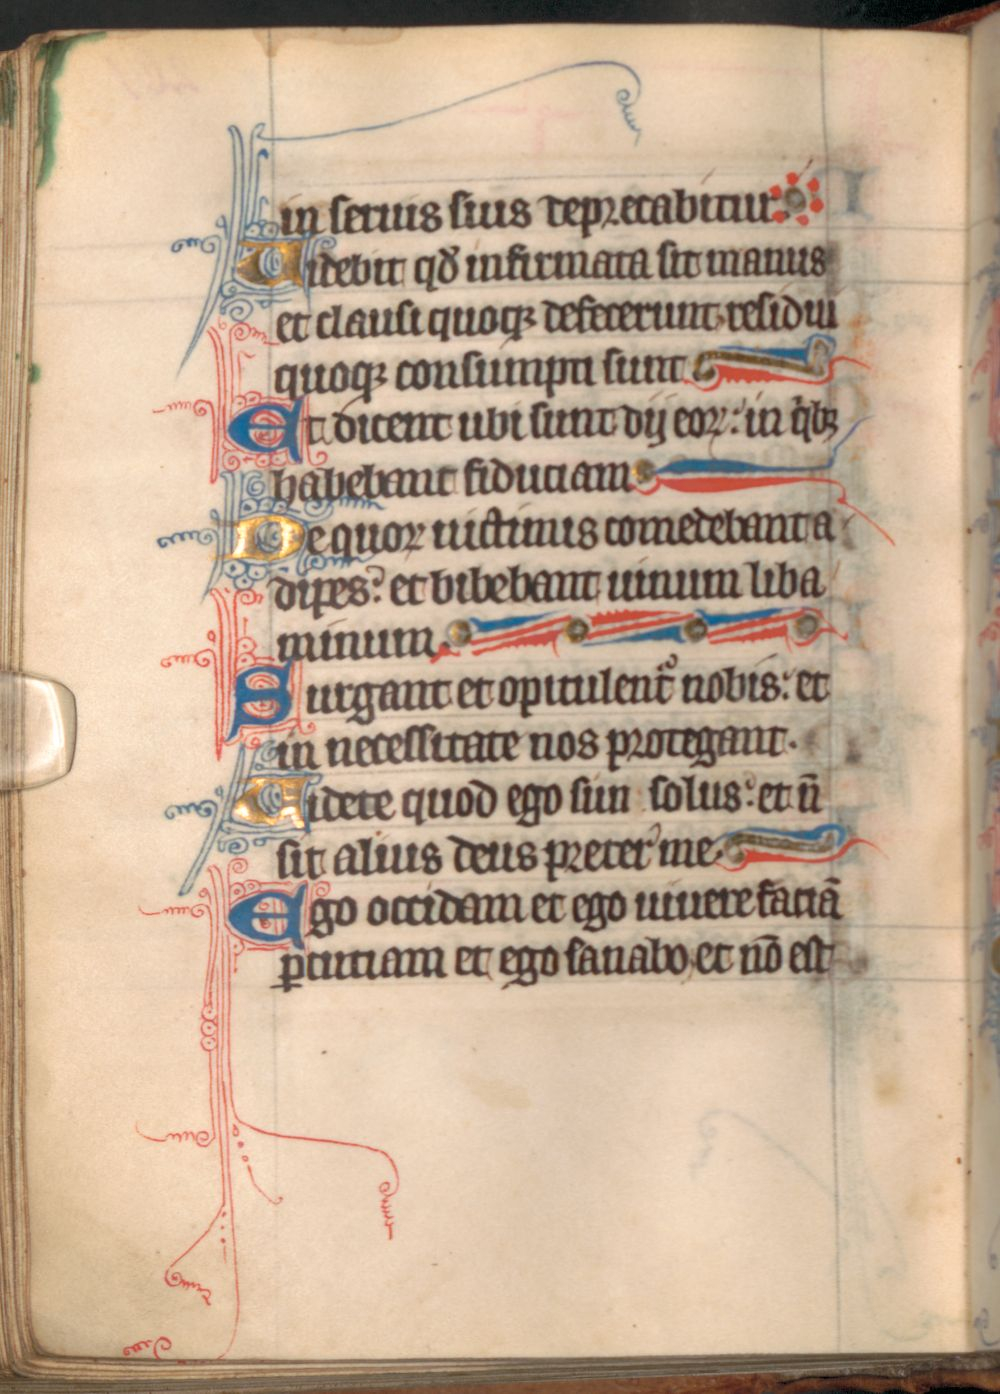 in seruis suis deprecabitur.
Uidebit qd̄ infirmata sit manus
et clausi quoqꝫ defecerunt, residui
quoqꝫ consumpti sunt
Et dicent ubi sunt dij eoꝝ: in q̇bꝫ
habebant fiduciam
De quoꝝ uictimis comedebant a
dipes: et bibebant uinum liba
minum.
Surgant et opitulent᷑ nobis: et
in necessitate nos protegant.
Uidete quod ego sim solus: et n̄
sit alius deus preter me.
Ego occidam et ego uiuere faciā
ꝑcutiam et ego sanabo, et nō est